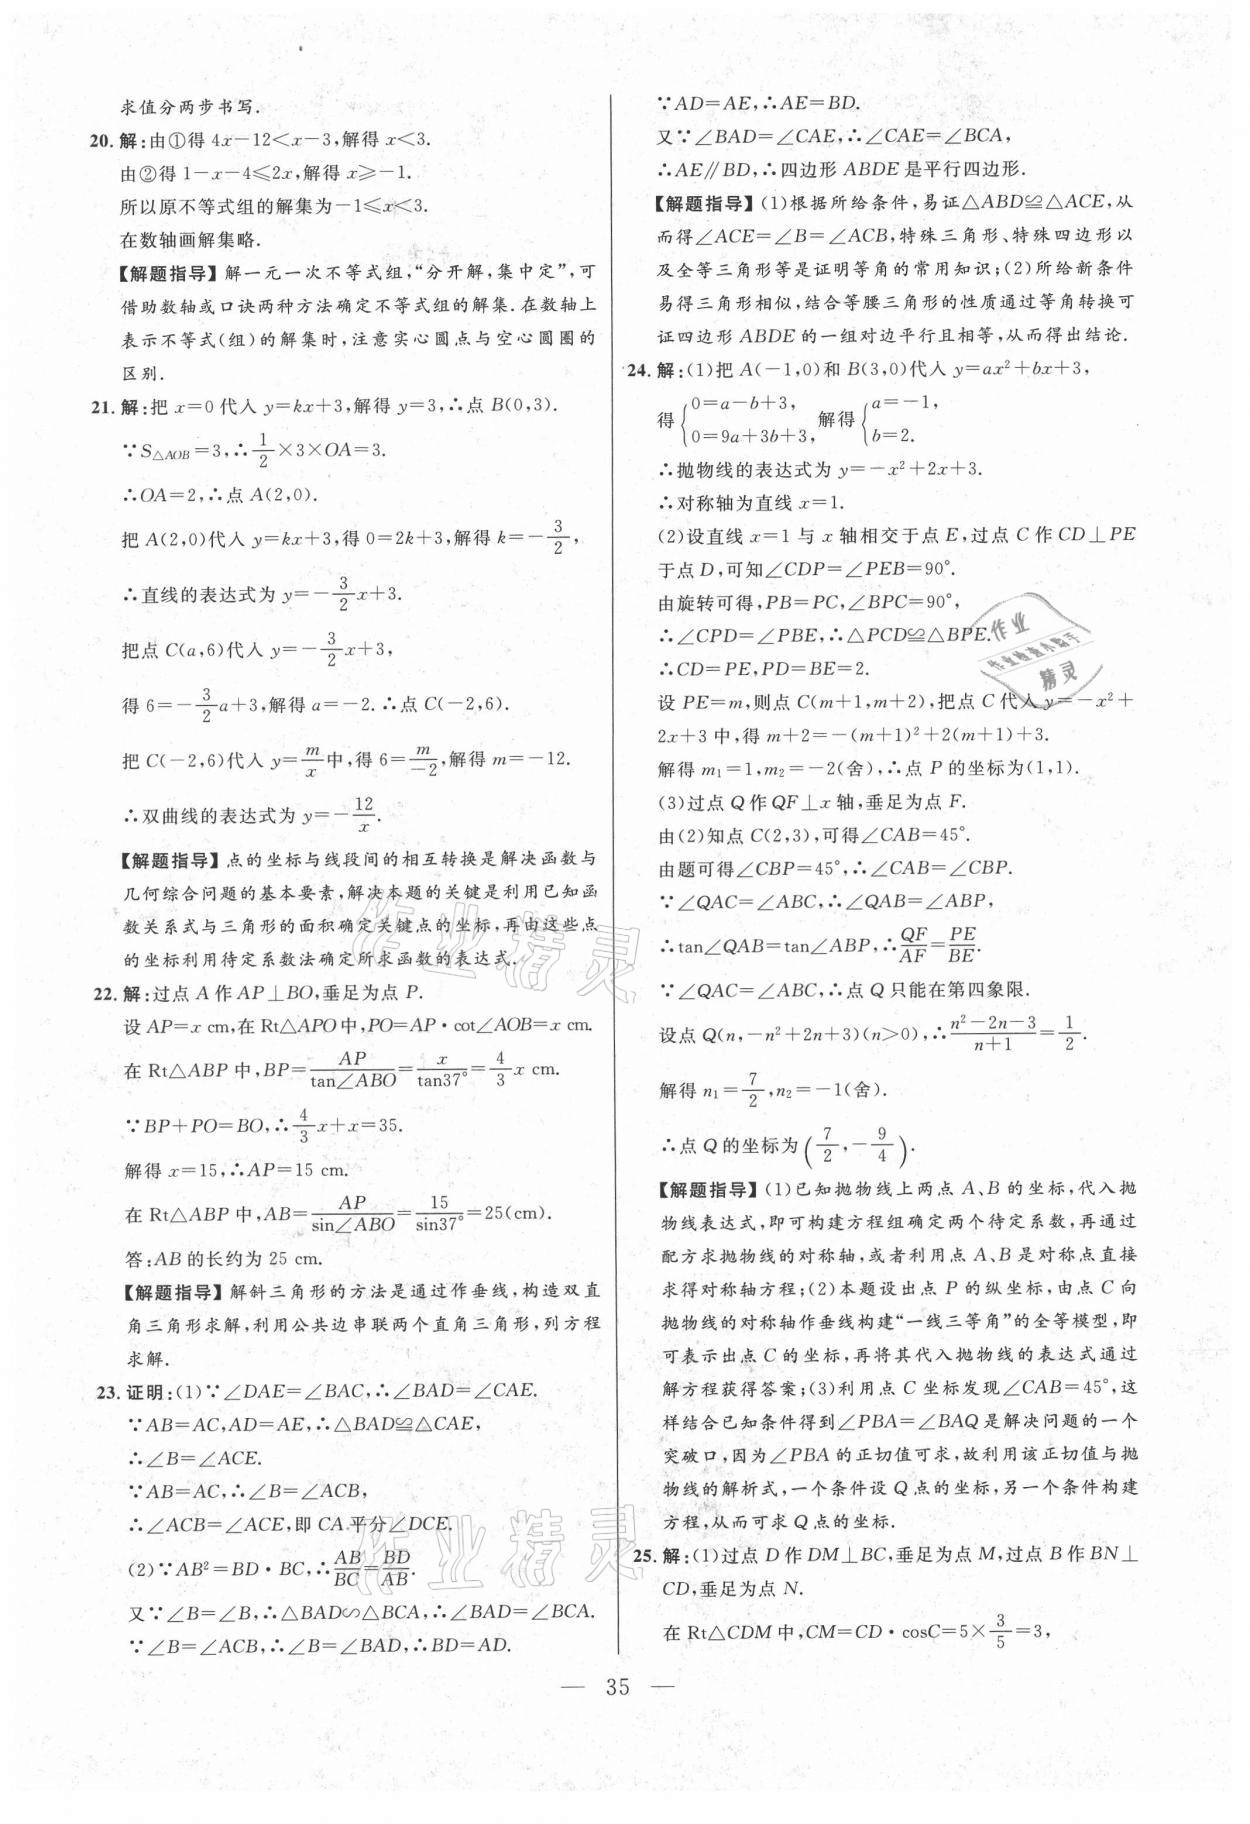 求值分两步书写.
20. 解:由①得 4x-12<x-3,解得 x<3.
由②得 1-x-4≤2x,解得 x≥-1.
所以原不等式组的解集为-1≤x<3.
在数轴画解集略.
【解题指导】解一元一次不等式组,“分开解,集中定”,可
借助数轴或口诀两种方法确定不等式组的解集.在数轴上
表示不等式(组)的解集时,注意实心圆点与空心圆圈的
区别.
21. 解:把 x=0 代入 y=kx+3,解得 y=3,∴点 B(0,3).
∵S△AOB=3,∴1/2×3×OA=3.
∴OA=2,∴点 A(2,0).
把 A(2,0)代入 y=kx+3,得 0=2k+3,解得 k=-3/2,
∴直线的表达式为 y=-3/2x+3.
把点 C(a,6)代入 y=-3/2x+3,
得 6=-3/2a+3,解得 a=-2.∴点 C(-2,6).
把 C(-2,6)代入 y=m/x中,得 6=m/-2,解得 m=-12.
∴双曲线的表达式为 y=-12/x.
【解题指导】点的坐标与线段间的相互转换是解决函数与
几何综合问题的基本要素,解决本题的关键是利用已知函
数关系式与三角形的面积确定关键点的坐标,再由这些点
的坐标利用待定系数法确定所求函数的表达式.
22. 解:过点 A 作 AP⊥BO,垂足为点 P.
设 AP=x cm,在 Rt△APO 中,PO=AP·cot∠AOB=x cm.
在 Rt△ABP 中,BP=AP/tan∠ABO=x/tan37°=4/3x cm.
∵BP+PO=BO,∴4/3x+x=35.
解得 x=15,∴AP=15 cm.
在 Rt△ABP 中,AB=AP/sin∠ABO=15/sin37°=25(cm).
答:AB 的长约为 25 cm.
【解题指导】解斜三角形的方法是通过作垂线,构造双直
角三角形求解,利用公共边串联两个直角三角形,列方程
求解.
23. 证明:(1)∵∠DAE=∠BAC,∴∠BAD=∠CAE.
∵AB=AC,AD=AE,∴△BAD≌△CAE,
∴∠B=∠ACE.
∵AB=AC,∴∠B=∠ACB,
∴∠ACB=∠ACE,即 CA 平分∠DCE.
(2)∵AB²=BD·BC,∴AB/BC=BD/AB.
又∵∠B=∠B,∴△BAD∽△BCA,∴∠BAD=∠BCA.
∵∠B=∠ACB,∴∠B=∠BAD,∴BD=AD.
∵AD=AE,∴AE=BD.
又∵∠BAD=∠CAE,∴∠CAE=∠BCA,
∴AE∥BD,∴四边形 ABDE 是平行四边形.
【解题指导】(1)根据所给条件,易证△ABD≌△ACE,从
而得∠ACE=∠B=∠ACB,特殊三角形、特殊四边形以
及全等三角形等是证明等角的常用知识;(2)所给新条件
易得三角形相似,结合等腰三角形的性质通过等角转换可
证四边形 ABDE 的一组对边平行且相等,从而得出结论.
24. 解:(1)把 A(-1,0)和 B(3,0)代入 y=ax²+bx+3,
得{0=a-b+3, 0=9a+3b+3, 解得{a=-1, b=2.
∴抛物线的表达式为 y=-x²+2x+3.
∴对称轴为直线 x=1.
(2)设直线 x=1 与 x 轴相交于点 E,过点 C 作 CD⊥PE
于点 D,可知∠CDP=∠PEB=90°.
由旋转可得,PB=PC,∠BPC=90°,
∴∠CPD=∠PBE,∴△PCD≌△BPE.
∴CD=PE,PD=BE=2.
设 PE=m,则点 C(m+1,m+2),把点 C 代入 y=-x²+
2x+3 中,得 m+2=-(m+1)²+2(m+1)+3.
解得 m₁=1,m₂=-2(舍),∴点 P 的坐标为(1,1).
(3)过点 Q 作 QF⊥x 轴,垂足为点 F.
由(2)知点 C(2,3),可得∠CAB=45°.
由题可得∠CBP=45°,∴∠CAB=∠CBP.
∵∠QAC=∠ABC,∴∠QAB=∠ABP,
∴tan∠QAB=tan∠ABP,∴QF/AF=PE/BE.
∵∠QAC=∠ABC,∴点 Q 只能在第四象限.
设点 Q(n,-n²+2n+3)(n>0),∴n²-2n-3/n+1=1/2.
解得 n₁=7/2,n₂=-1(舍).
∴点 Q 的坐标为(7/2,-9/4).
【解题指导】(1)已知抛物线上两点 A、B 的坐标,代入抛
物线表达式,即可构建方程组确定两个待定系数,再通过
配方求抛物线的对称轴,或者利用点 A、B 是对称点直接
求得对称轴方程;(2)本题设出点 P 的纵坐标,由点 C 向
抛物线的对称轴作垂线构建“一线三等角”的全等模型,即
可表示出点 C 的坐标,再将其代入抛物线的表达式通过
解方程获得答案;(3)利用点 C 坐标发现∠CAB=45°,这
样结合已知条件得到∠PBA=∠BAQ是解决问题的一个
突破口,因为∠PBA 的正切值可求,故利用该正切值与抛
物线的解析式,一个条件设 Q 点的坐标,另一个条件构建
方程,从而可求 Q 点的坐标.
25. 解:(1)过点 D 作 DM⊥BC,垂足为点 M,过点 B 作 BN⊥
CD,垂足为点 N.
在 Rt△CDM 中,CM=CD·cosC=5×3/5=3,
— 35 —
作业
作业检查小助手
精灵
作业精灵
作业精灵